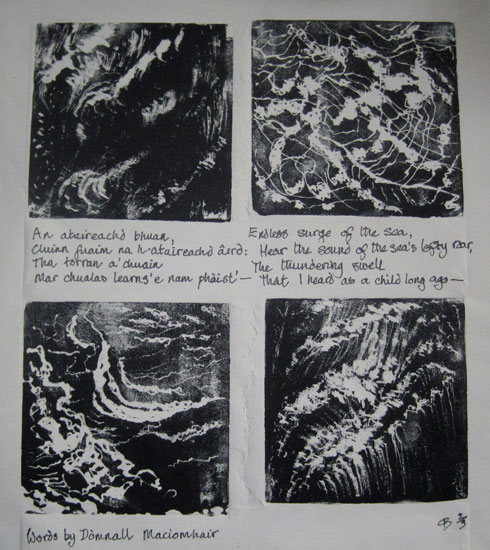 An ataireachd bhuan,
Cluinn fuaim na h-ataireachd àrd:
Tha torran a'chuain
Mar chualas leams'e nam phàist'—
Endless surge of the sea,
Hear the sound of the sea's lofty roar,
The thundering swell
That I heard as a child long ago—
Words by Dòmnall Maciomhair